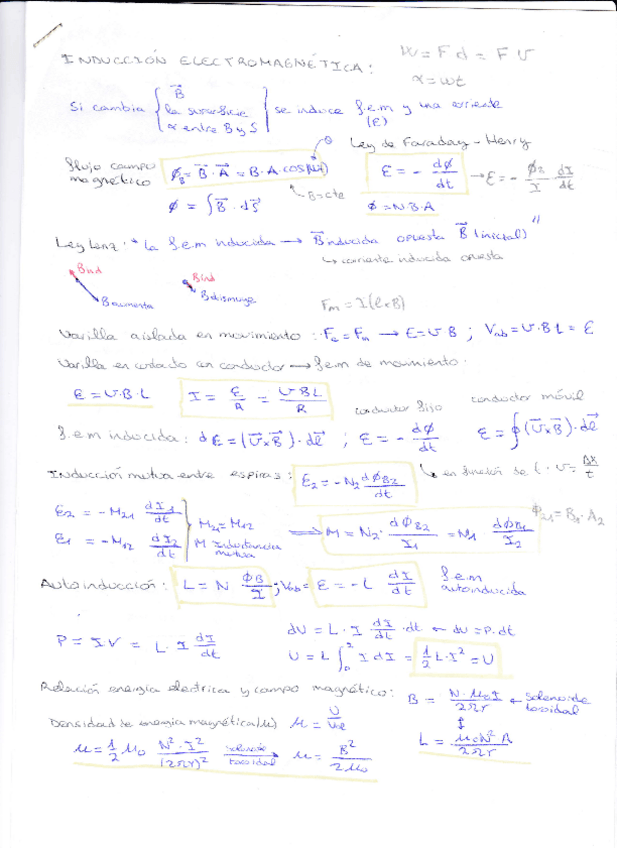 INDUCCIÓN ELECTROMAGNÉTICA:
W = F d = F v
α = ωt
Si cambia { B⃗ / la superficie / α entre B y S } se induce f.e.m y una corriente
(ε)
Ley de Faraday - Henry
flujo campo magnético
Φ_B = B⃗ · A⃗ = B · A · cos
B = cte
Φ = ∫ B⃗ · dS⃗
ε = - dΦ/dt → ε = - Φ₂/I · dI/dt
Φ = N · B · A
Ley Lenz: " la f.e.m inducida → B⃗ inducida opuesta B⃗ (inicial) "
↳ corriente inducida opuesta
B ind
B aumenta
B ind
B disminuye
F_m = I(l × B)
Varilla aislada en movimiento : F_e = F_m → E = v B ; V_ab = v · B L = ε
Varilla en contacto con conductor → f.e.m de movimiento.
ε = v · B · L
I = ε/R = v B L/R
conductor fijo
conductor móvil
f.e.m inducida: dε = (v⃗ × B⃗) · dl⃗ ; ε = - dΦ/dt
ε = ∮ (v⃗ × B⃗) · dl⃗
↳ en función de t · v = Δx/t
Inducción mutua entre espiras : ε₂ = - N₂ dΦ_B2/dt
ε₂ = - M₂₁ dI₁/dt
ε₁ = - M₁₂ dI₂/dt
M₂₁ = M₁₂
M inductancia mutua
⟹ M = N₂ · dΦ_B2/I₁ = N₁ dΦ_B1/I₂
Φ₂₁ = B₁ · A₂
Autoinducción : L = N Φ_B/I ; V_ab = ε = - L dI/dt
f.e.m autoinducida
P = I V = L · I dI/dt
dU = L · I · dI/dt · dt ← dU = P · dt
U = L ∫ I dI = ½ L · I² = U
Relación energía eléctrica y campo magnético :
B = N · μ₀ I/2πr ← solenoide toroidal
Densidad de energía magnética (μ) μ = U/Vol
L = μ₀ N² A/2πr
μ = ½ μ₀ N² · I²/(2πr)² solenoide toroidal → μ = B²/2μ₀